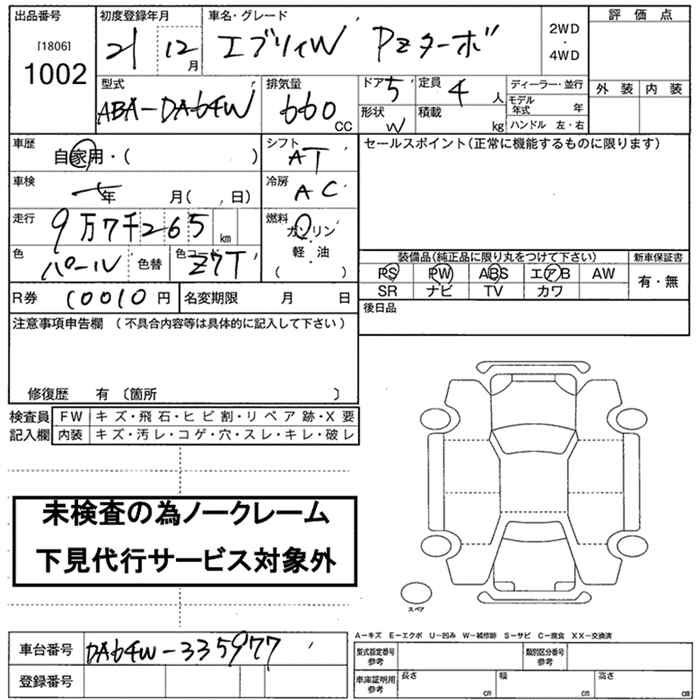 出品番号 初度登録年月 車名・グレード 評価点
[1806] 1002 21 12月 エブリィW PZターボ 2WD・4WD
型式 排気量 ドア 5 定員 4人 ディーラー・並行 外装 内装
ABA-DA64W 660cc 形状 W 積載 kg モデル年式 年
ハンドル 左・右
車歴 自家用・( ) シフト AT セールスポイント(正常に機能するものに限ります)
車検 年 月( 、日) 冷房 AC
走行 9万7千265km 燃料 ガソリン・軽・油 ( )
色 パール 色替 色コード Z7T 装備品(純正品に限り丸をつけて下さい) 新車保証書
PS PW ABS エアB AW 有・無
R券 10010円 名変期限 月 日 SR ナビ TV カワ
注意事項申告欄 (不具合内容等は具体的に記入して下さい) 後日品
修復歴 有 〔箇所 〕
検査員記入欄 FW キズ・飛石・ヒビ割・リペア跡・X要
内装 キズ・汚レ・コゲ・穴・スレ・キレ・破レ
未検査の為ノークレーム
下見代行サービス対象外
スペア
A−キズ E−エクボ U−凹み W−補修跡 S−サビ C−腐食 XX−交換済
車台番号 DA64W-335977 型式指定番号参考 類別区分番号参考
登録番号 車庫証明用参考 長さ cm 幅 cm 高さ cm